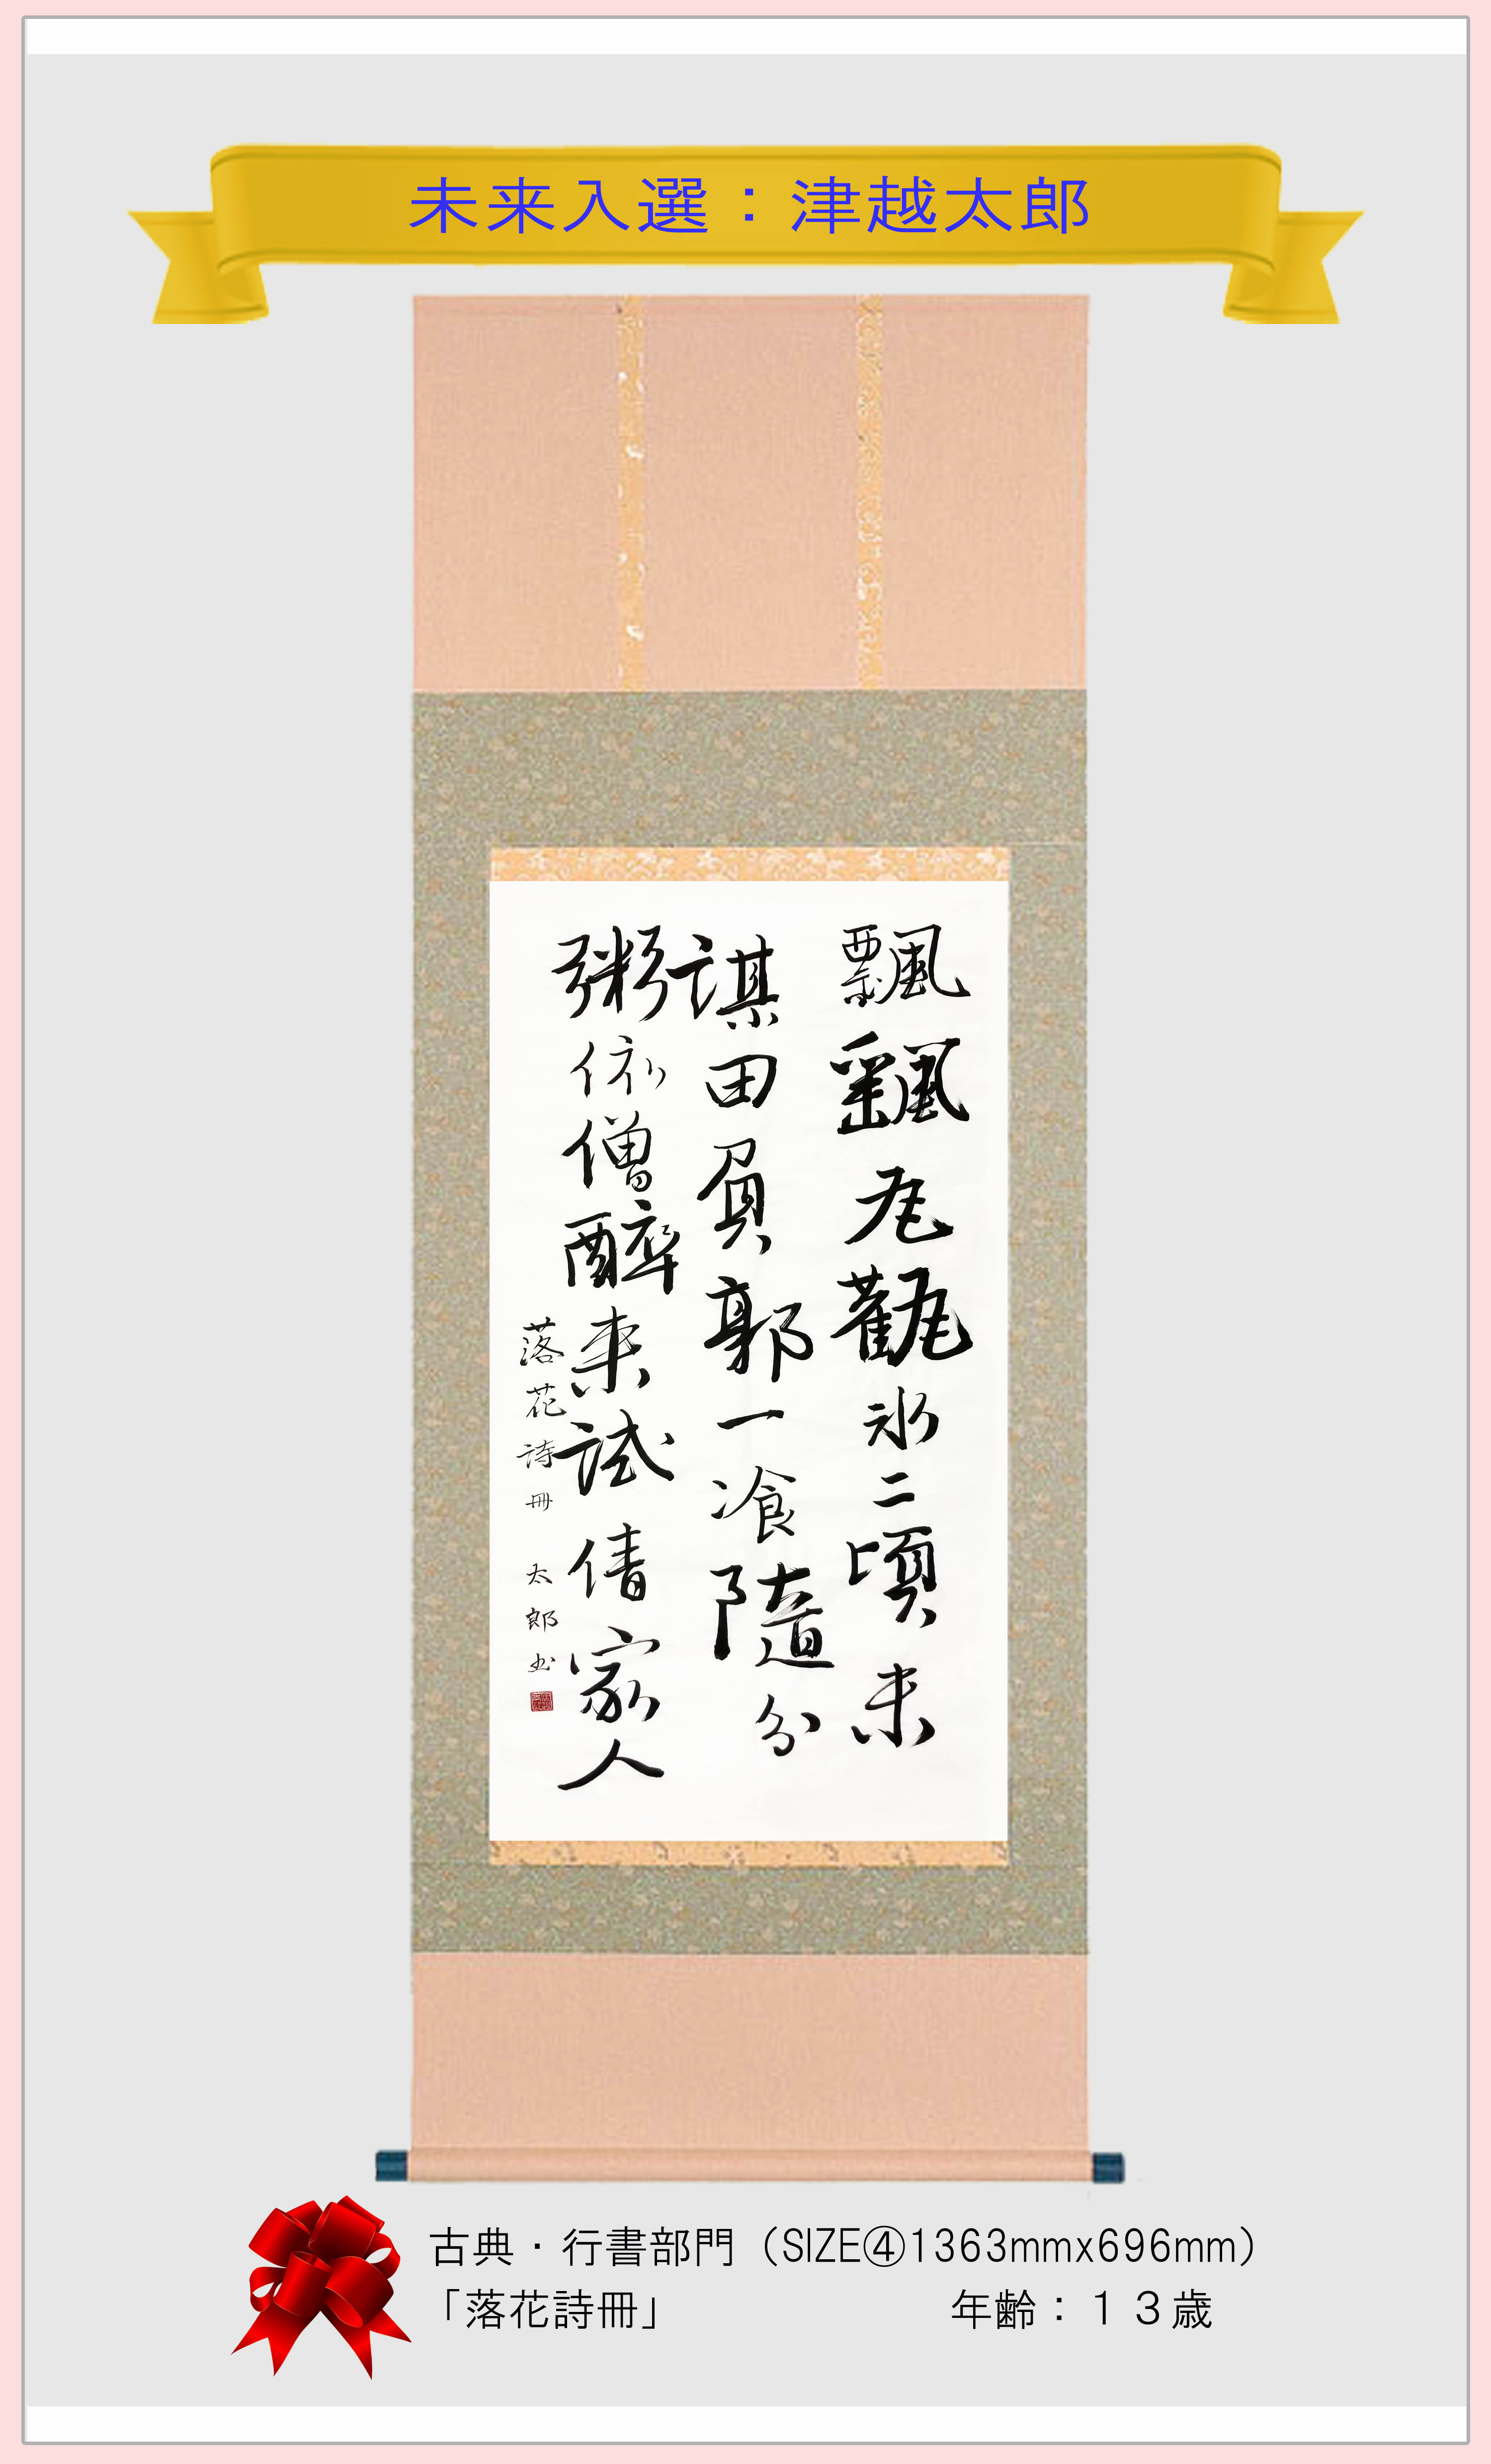 未来入選：津越太郎
飄颻氷二頃未
謀田負郭一飡隨分
粥依僧醉来試倩家人
落花詩冊 太郎书
古典・行書部門（SIZE④1363mmx696mm）
「落花詩冊」 年齢：１３歳